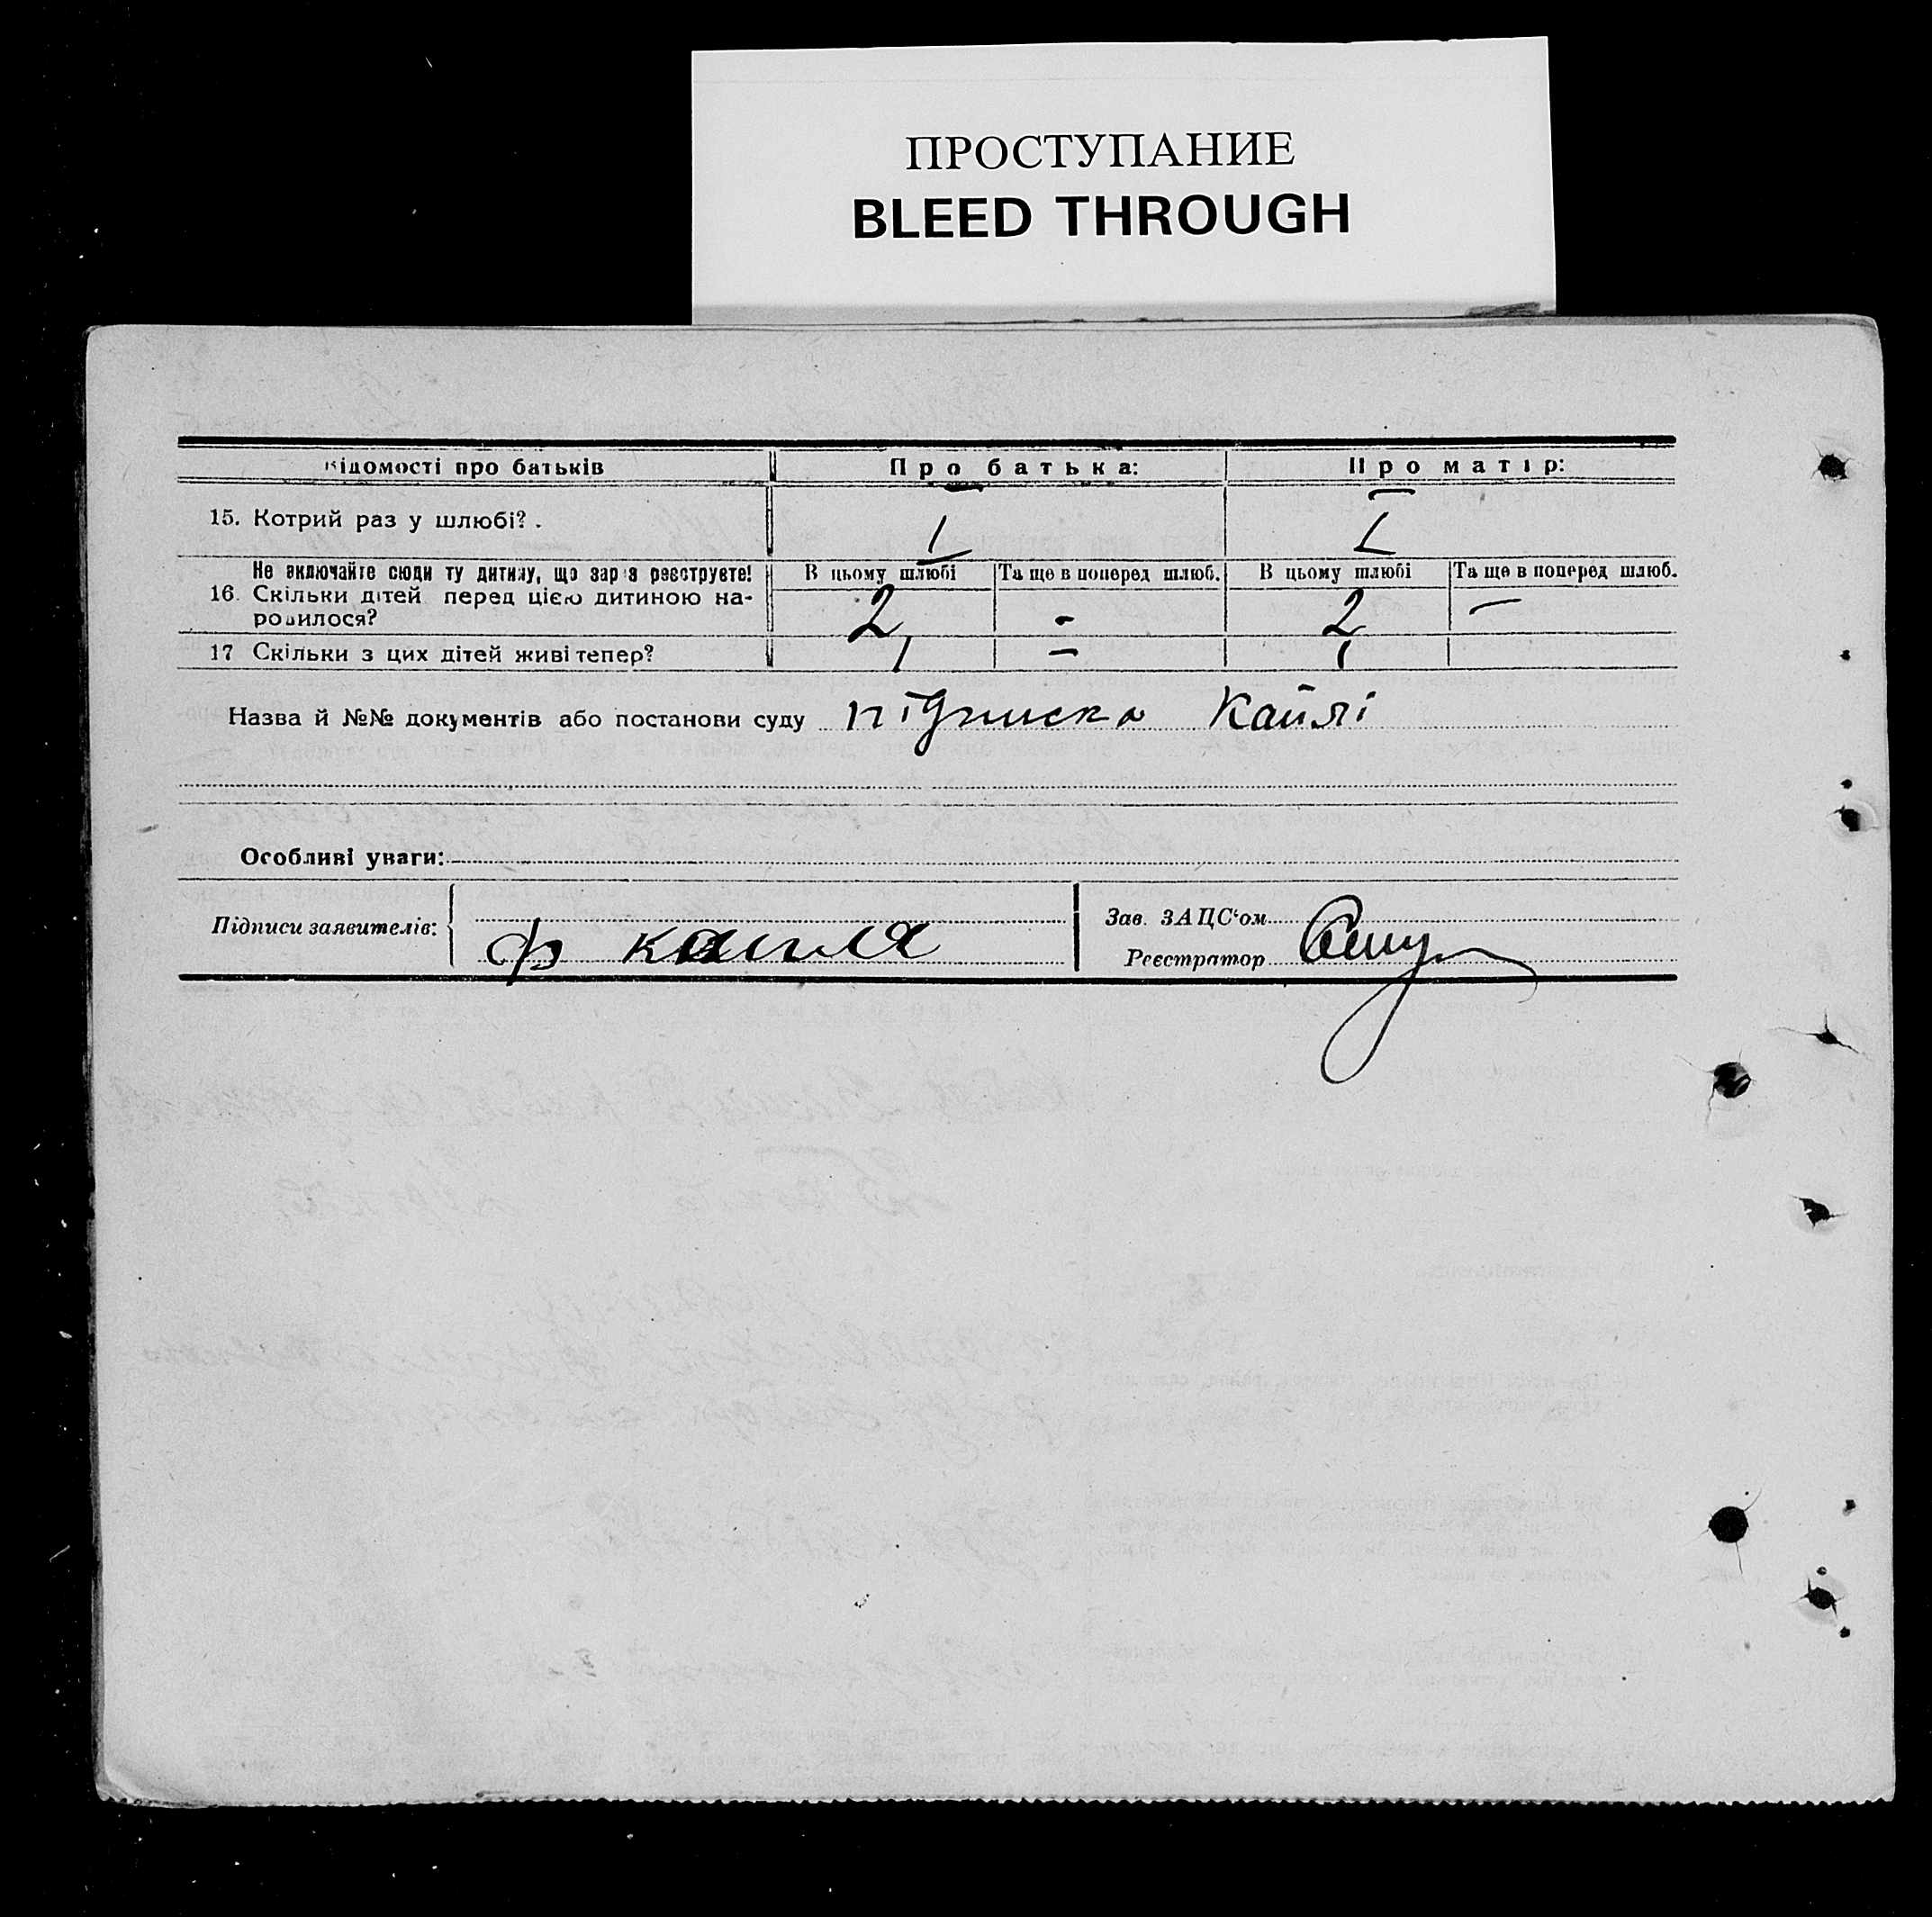 ПРОСТУПАНИЕ
BLEED THROUGH
Відомості про батьків Про батька: Про матір:
15. Котрий раз у шлюбі? . I I
Не включайте сюди ту дитину, що зараз реєструєте! В цьому шлюбі Та ще в поперед шлюб. В цьому шлюбі Та ще в поперед шлюб.
16. Скільки дітей перед цією дитиною на-
родилося? 2 - 2 -
17 Скільки з цих дітей живі тепер? 1 - 1
Назва й №№ документів або постанови суду підписка Кайлі
Особливі уваги:
Підписи заявителів: ф кайла
Зав. ЗАЦС'ом
Реєстратор